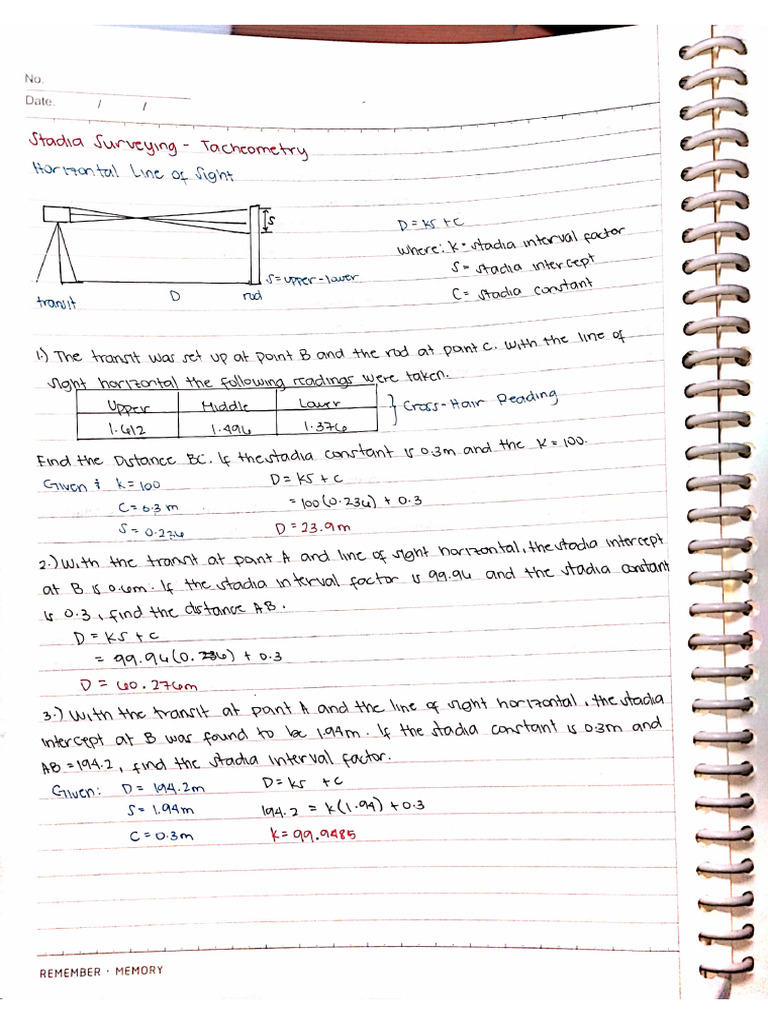 No.
Date. / /
Stadia Surveying - Tacheometry
Horizontal Line of Sight
S
D = KS + C
where: K = stadia interval factor
S = stadia intercept
C = stadia constant
S = upper - lower
transit D rod
1.) The transit was set up at point B and the rod at point C. With the line of
sight horizontal the following readings were taken.
Upper Middle Lower
1.612 1.496 1.376
} Cross-Hair Reading
Find the Distance BC. If the stadia constant is 0.3m and the K = 100.
Given: K = 100 D = KS + C
C = 0.3 m = 100(0.236) + 0.3
S = 0.236 D = 23.9m
2.) With the transit at point A and line of sight horizontal, the stadia intercept
at B is 0.6m. If the stadia interval factor is 99.96 and the stadia constant
is 0.3, find the distance AB.
D = KS + C
= 99.96(0.236) + 0.3
D = 60.276m
3.) With the transit at point A and the line of sight horizontal, the stadia
intercept at B was found to be 1.94m. If the stadia constant is 0.3m and
AB = 194.2, find the stadia interval factor.
Given: D = 194.2m D = KS + C
S = 1.94m 194.2 = K(1.94) + 0.3
C = 0.3m K = 99.9485
REMEMBER · MEMORY